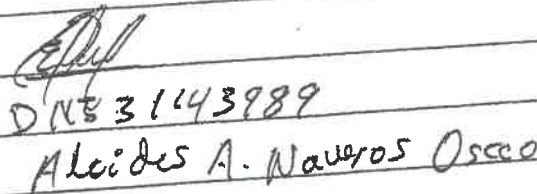 DNI 31143989
Alcides A. Naveros Oscco